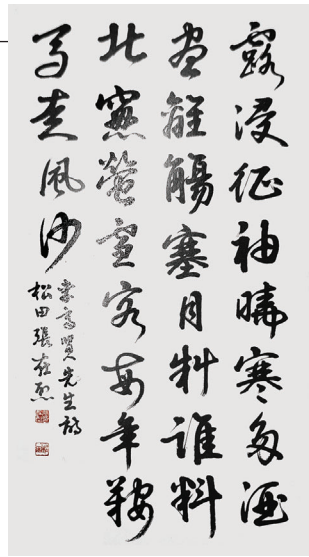 露浸征袖曉寒多酒
盡離觴塞月斜誰料
北窓螢雪客每年鞍
馬走風沙
先生詩
松田張